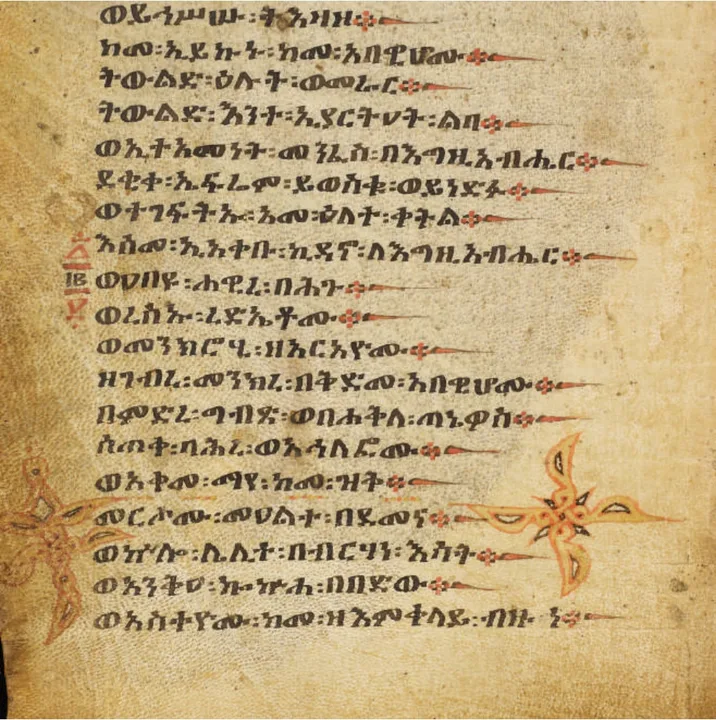 ወይኀሥሡ፡ትእዛዞ።
ከመ፡ኢይኩኑ፡ከመ፡አበዊሆሙ።
ትውልድ፡ዕሉት፡ወመራር።
ትውልድ፡እንተ፡ኢያርትዐት፡ልባ።
ወኢተአመነት፡መንፈስ፡በእግዚአብሔር።
ደቂቀ፡ኤፍሬም፡ይወስቁ፡ወይነድፉ።
ወተገፍትኡ፡አመ፡ዕለተ፡ቀትል።
እስመ፡ኢአቀቡ፡ኪዳኖ፡ለእግዚአብሔር።
ወዐበዩ፡ሐዊረ፡በሕጉ።
ወረስኡ፡ረድኤቶሙ።
ወመንክሮሂ፡ዘአርአዮሙ።
ዘገብረ፡መንክረ፡በቅድመ፡አበዊሆሙ።
በምድረ፡ግብጽ፡ወበሐቅለ፡ጣኔዎስ።
ሰጠቀ፡ባሕረ፡ወአኅለፎሙ።
ወአቀመ፡ማየ፡ከመ፡ዝቅ።
መርሖሙ፡መዐልተ፡በደመና።
ወኵሎ፡ሌሊተ፡በብርሃነ፡እሳት።
ወአንቅዐ፡ኰኵሐ፡በበድው።
ወአስተዮሙ፡ከመ፡ዘእምቀላይ፡